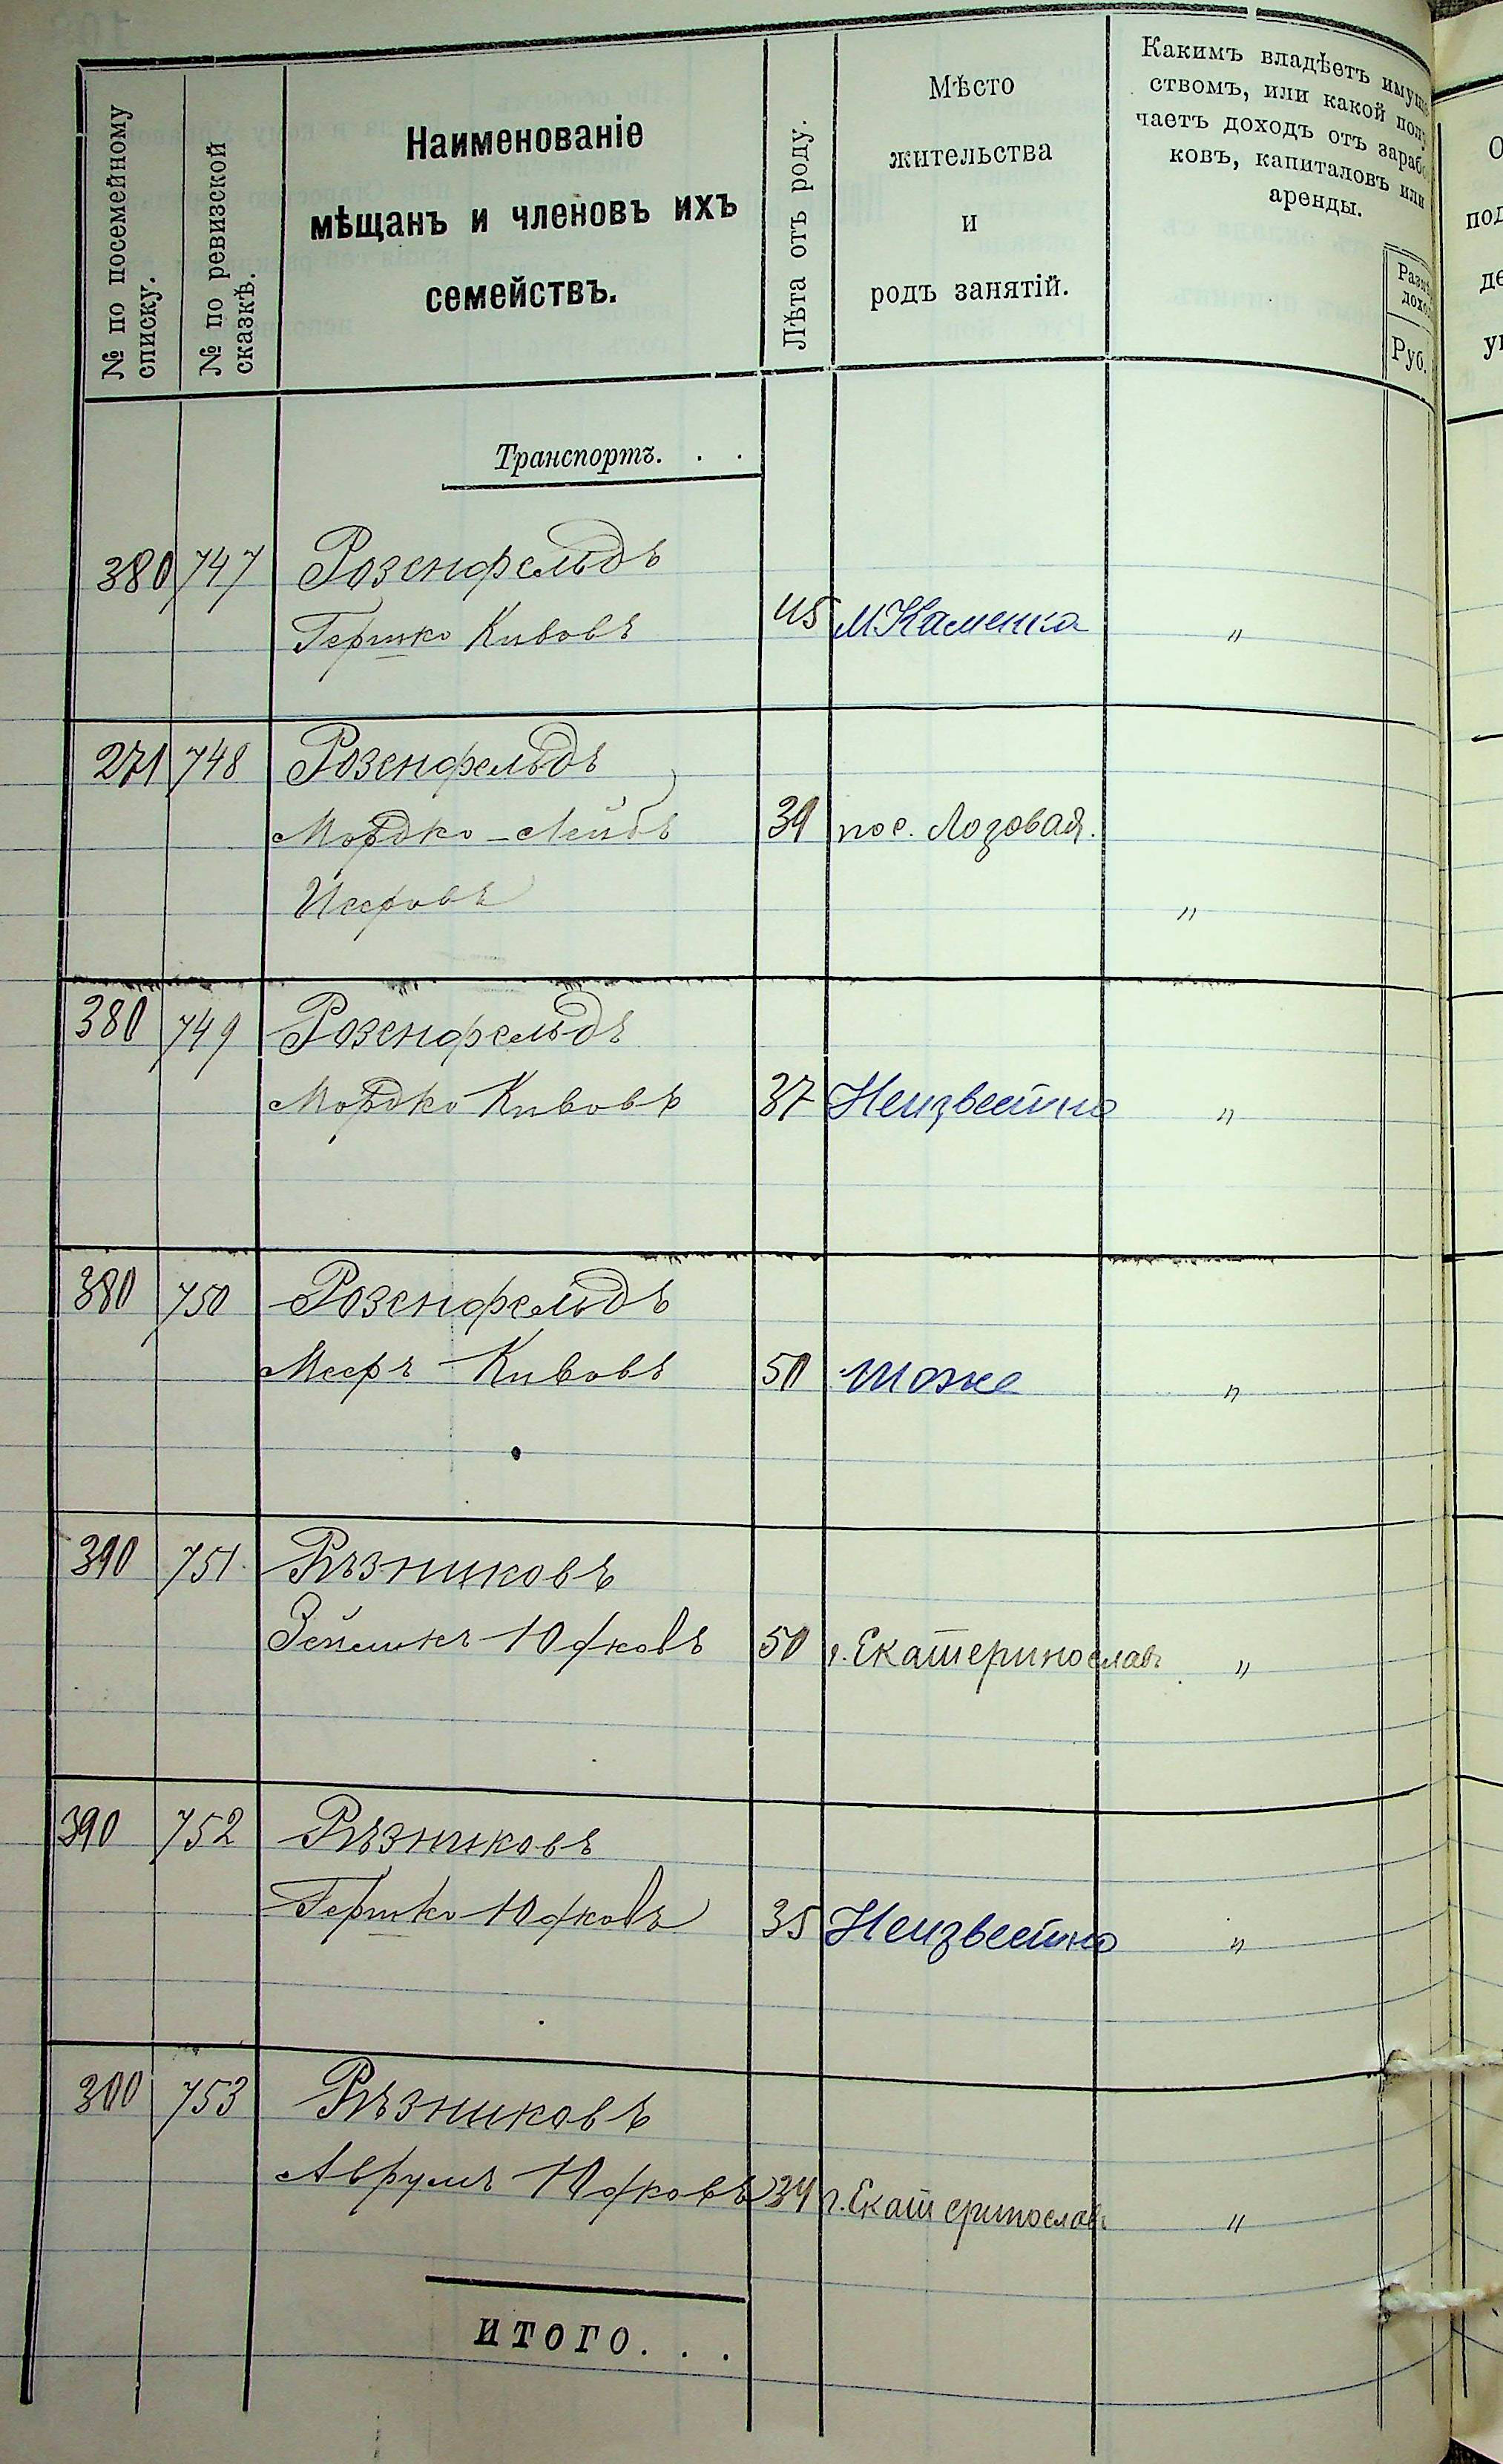 № по посемейному
списку.
№ по ревизской
сказкѣ.
Наименованіе
мѣщанъ и членовъ ихъ
семействъ.
Лѣта отъ роду.
Мѣсто
жительства
и
родъ занятій.
Какимъ владѣетъ имуще
ствомъ, или какой полу
чаетъ доходъ отъ зарабо
ковъ, капиталовъ или
аренды.
Руб.
Транспортъ. . .
380 747 Розенфельдъ
Гершко Кивовъ 45 М Каменка "
271 748 Розенфельдъ
Мордко-Лейбъ 39 пос. Лозовая.
Иосфовъ "
380 749 Розенфельдъ
Мордко Кивовъ 37 Неизвестно "
380 750 Розенфельдъ
Мееръ Кивовъ 50 тоже "
390 751 Рѣзниковъ
Юфковъ 50 г. Екатеринославъ "
390 752 Рѣзниковъ
Гершко Юфковъ 35 Неизвестно "
390 753 Рѣзниковъ
Аврумъ Юфковъ 34 г. Екатеринославъ "
ИТОГО. . .